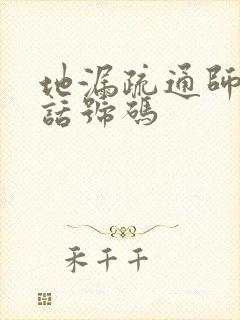 地漏疏通師
話號碼
禾千千